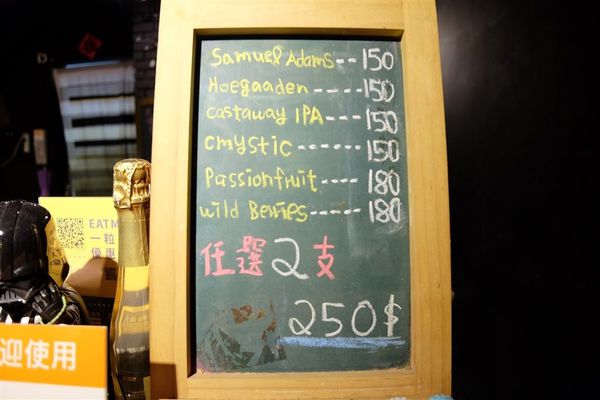 Samuel Adams--150
Hoegaaden----150
castaway IPA---150
cmystic------150
Passionfruit----180
wild Berries----180
任選2支
250$
EATM
一粒
優惠
迎使用